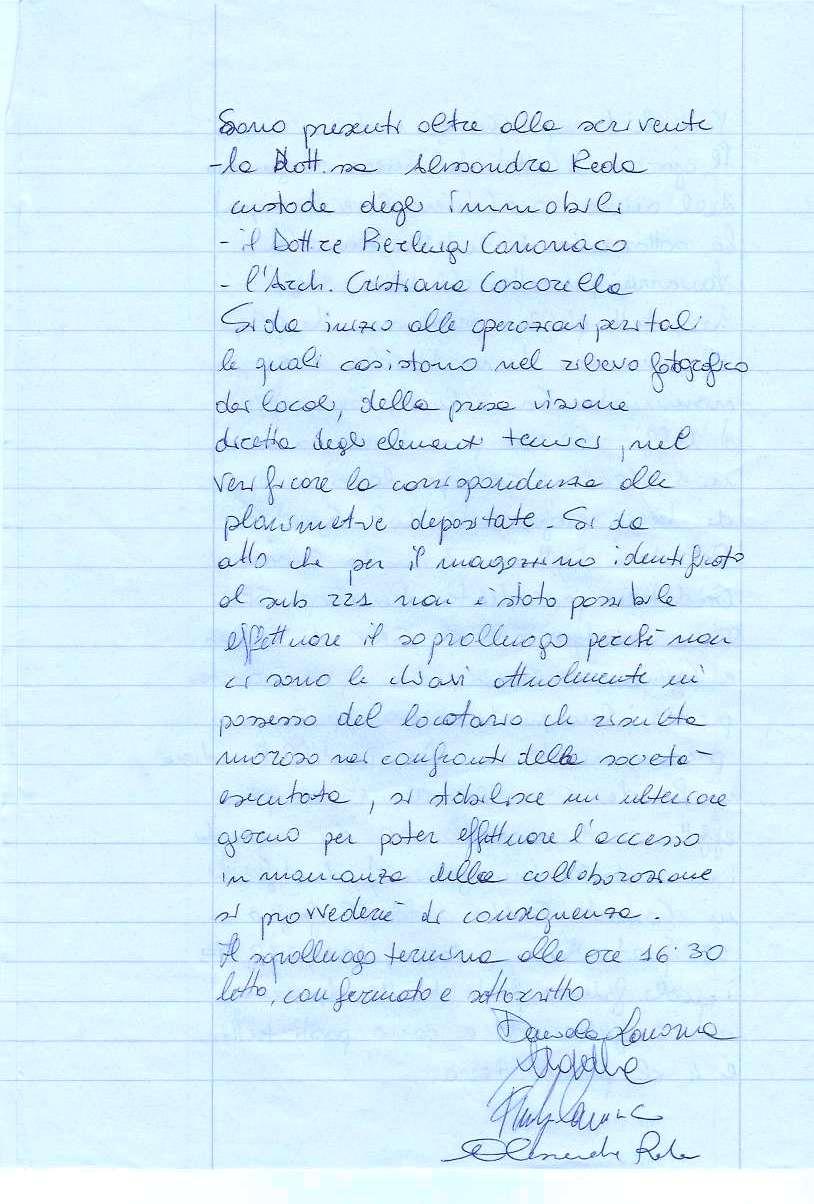 Sono presenti oltre alla scrivente
- la Dott.ssa Alessandra Reda
custode degli immobili
- il Dott.re Pierluigi Canonaco
- l'Arch. Cristiana Coscarella
Si da inizio alle operazioni peritali
le quali cosistono nel rilievo fotografico
dei locali, della presa visione
diretta degli elementi tecnici, nel
verificare la corrispondenza alle
planimetrie depositate. Si da
atto che per il magazzino identificato
al sub 221 non è stato possibile
effettuare il sopralluogo perché non
ci sono le chiavi attualmente in
possesso del locatario che risulta
moroso nei confronti della società
esecutata, si stabilisce un ulteriore
giorno per poter effettuare l'accesso
in mancanza della collaborazione
si provvederà di conseguenza.
Il sopralluogo termina alle ore 16.30
letto, confermato e sottoscritto
Alessandra Reda